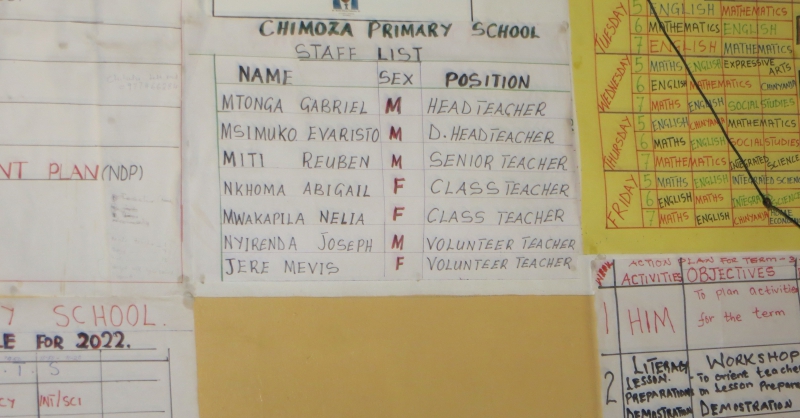 CHIMOZA PRIMARY SCHOOL
STAFF LIST
NAME SEX POSITION
MTONGA GABRIEL M HEADTEACHER
MSIMUKO EVARISTO M D.HEADTEACHER
MITI REUBEN M SENIOR TEACHER
NKHOMA ABIGAIL F CLASS TEACHER
MWAKAPILA NELIA F CLASS TEACHER
NYIRENDA JOSEPH M VOLUNTEER TEACHER
JERE MEVIS F VOLUNTEER TEACHER
NT PLAN(NDP)
Y SCHOOL.
LE FOR 2022.
T. S
CY INT/SCI
TUESDAY
5 ENGLISH MATHEMATICS
6 MATHEMATICS ENGLISH
7 ENGLISH MATHEMATICS
WEDNESDAY
5 MATHS ENGLISH EXPRESSIVE ARTS
6 ENGLISH MATHEMATICS
7 MATHS ENGLISH SOCIAL STUDIES
THURSDAY
5 ENGLISH MATHEMATICS
6 MATHS ENGLISH SOCIAL STUDIES
7 MATHEMATICS INTEGRATED SCIENCE
FRIDAY
5 MATHS ENGLISH INTEGRATED SCIENC
6 ENGLISH MATHS
7 MATHS ENGLISH
ACTION PLAN FOR TERM-3
ACTIVITIES OBJECTIVES
1 HIM To plan activities
for the term
2 LITERACY WORKSHOP
LESSON. - To orient teache
PREPARATION on Lesson Prepara
DEMOSTRATION DEMOSTRATION